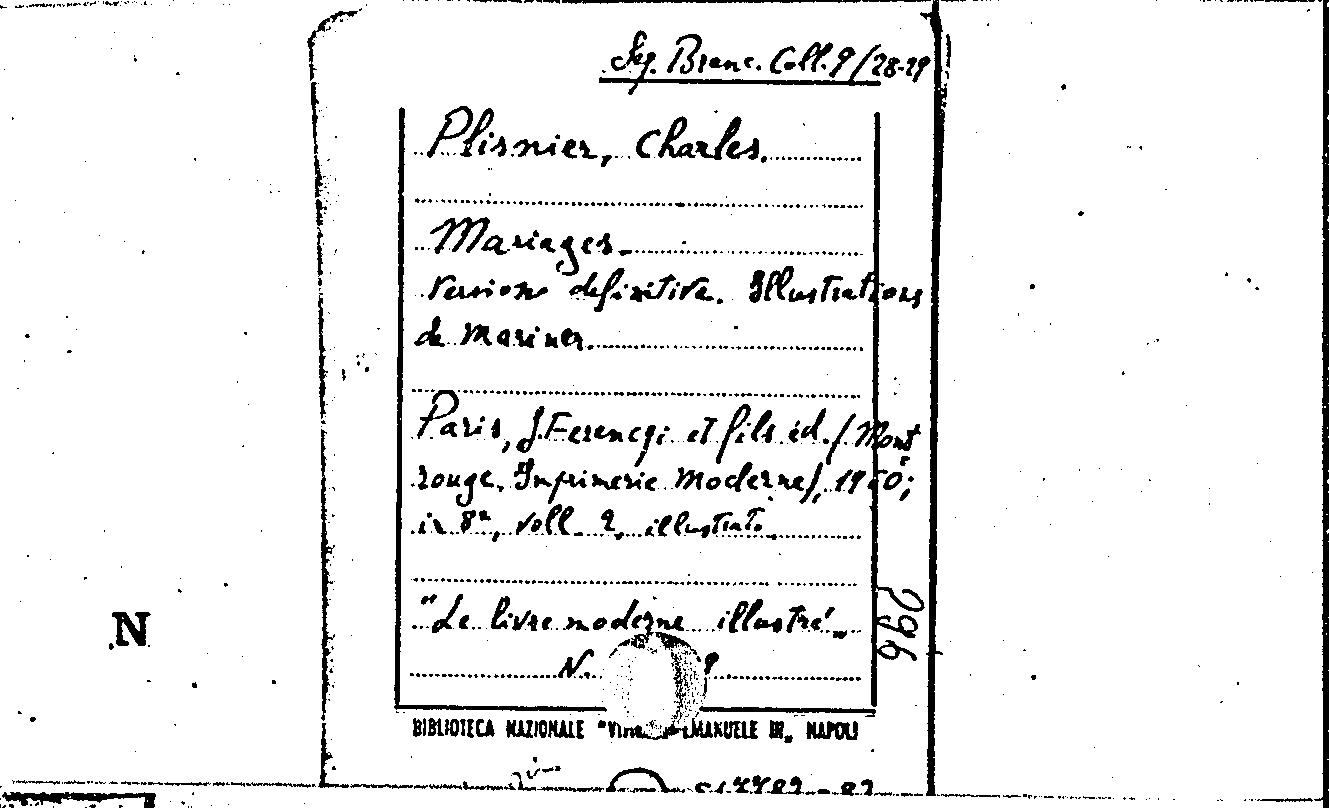 Seg. Branc. Coll. 9/28-29
Plisnier, Charles.
Mariages.
Version definitive. Illustrations
de Mariner.
Paris, J. Ferenczi et fils éd. / Mont-
rouge, Imprimerie Moderne/, 1950;
in 8°, voll. 2, illustrato.
"Le livre moderne illustré„
N.
296
N
BIBLIOTECA NAZIONALE EMANUELE III„ NAPOLI